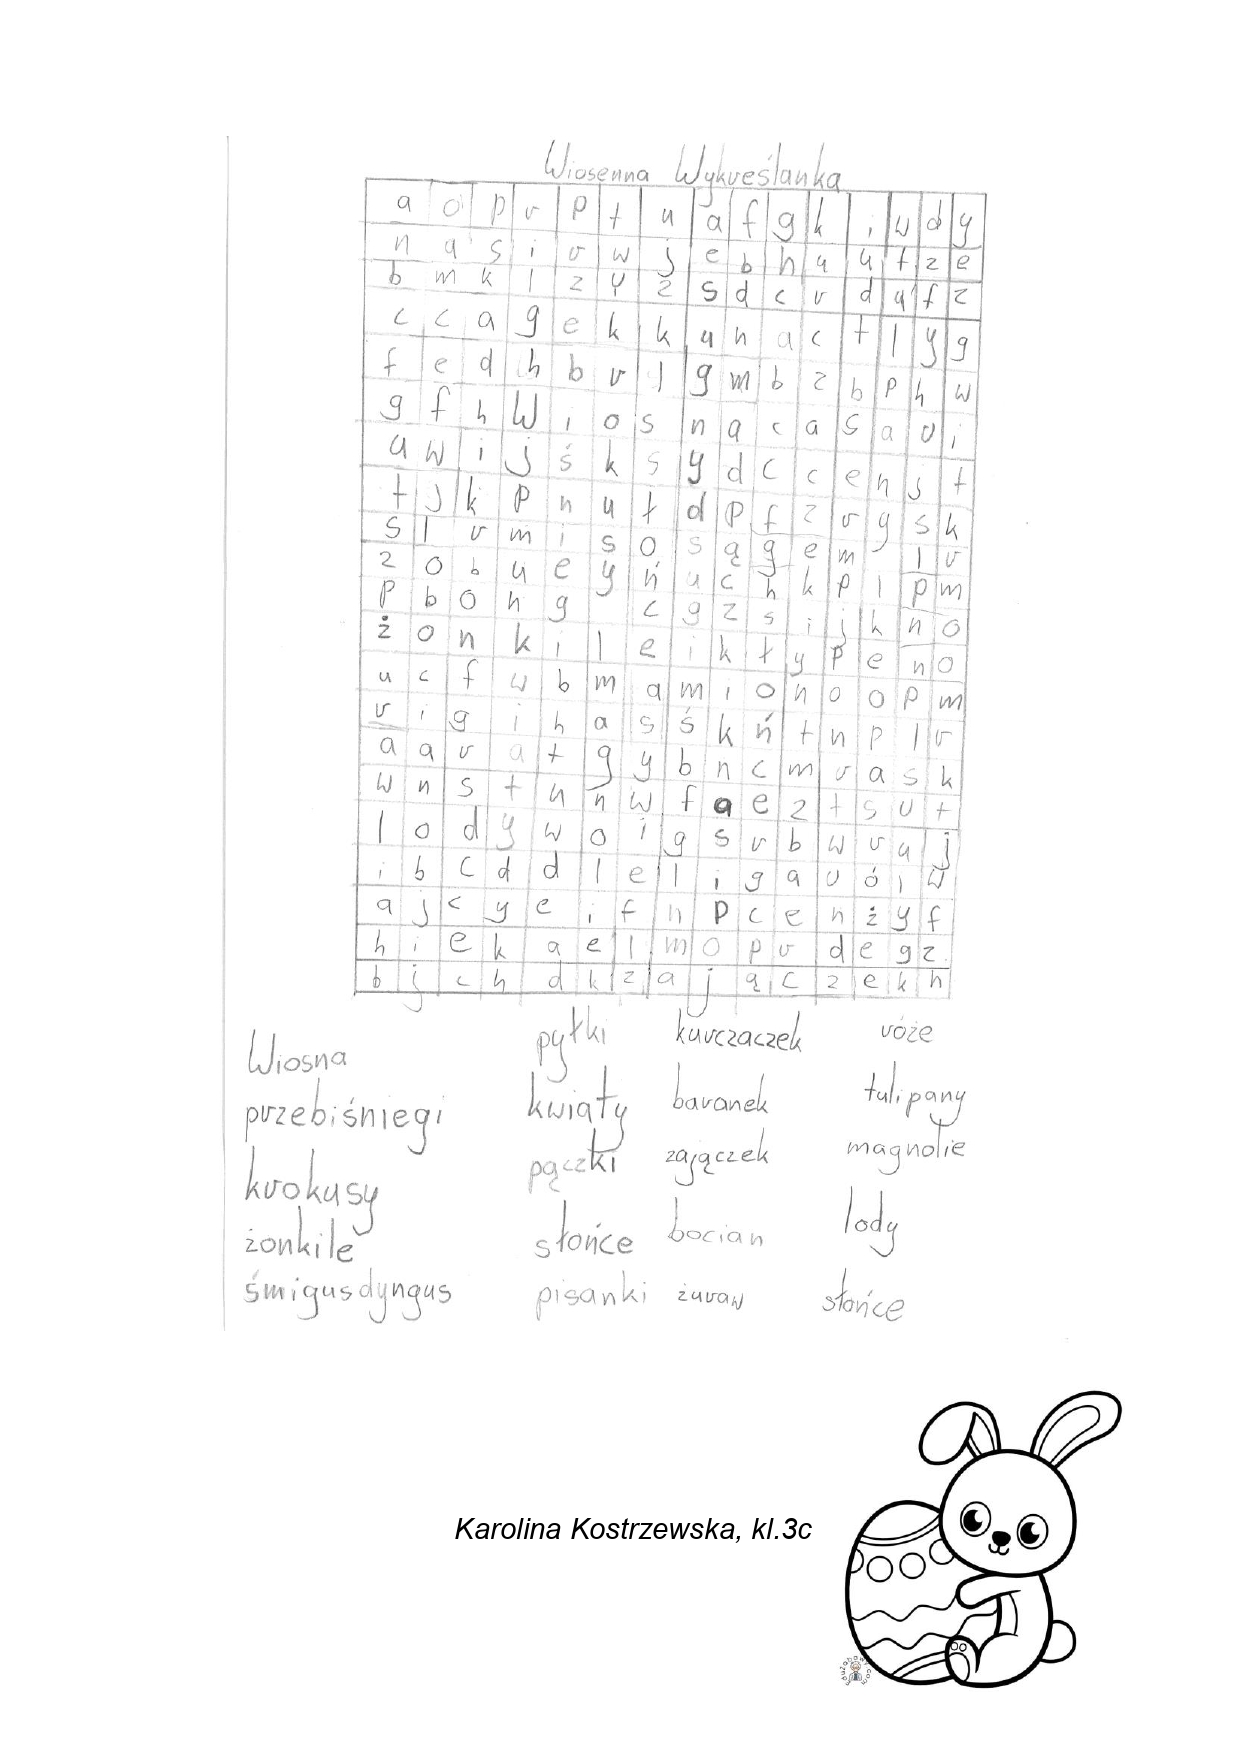 Wiosenna Wykreślanka
a o p r p t u a f g k i w d y
n a s i r w j e b h u u t z e
b m k l z y z s d c r d a f z
c c a g e k k u n a c t l y g
f e d h b r l g m b z b p h w
g f h W i o s n a c a s a r i
u w i j ś k s y d c c e n j t
t j k p n u ł d p f z r y s k
s l r m i s o s ą g e m l r
z o b u e y ń u c h k p l p m
p b o n g c g z s i j k n o
ż o n k i l e i k ł y p e n o
u c f w b m a m i o n o o p m
r i g i h a s ś k ń t n p l r
a a r a t g y b n c m r a s k
w n s t u n w f a e z t s u t
l o d y w o i g s r b w r u j
i b c d d l e l i g a r ó l w
a j c y e i f n p c e n ż y f
h i e k a e l m o p r d e g z
b j c h d k z a j ą c z e k h
Wiosna pyłki kurczaczek róże
przebiśniegi kwiaty baranek tulipany
krokusy pączki zajączek magnolie
żonkile słońce bocian lody
śmigusdyngus pisanki żuraw słońce
Karolina Kostrzewska, kl.3c